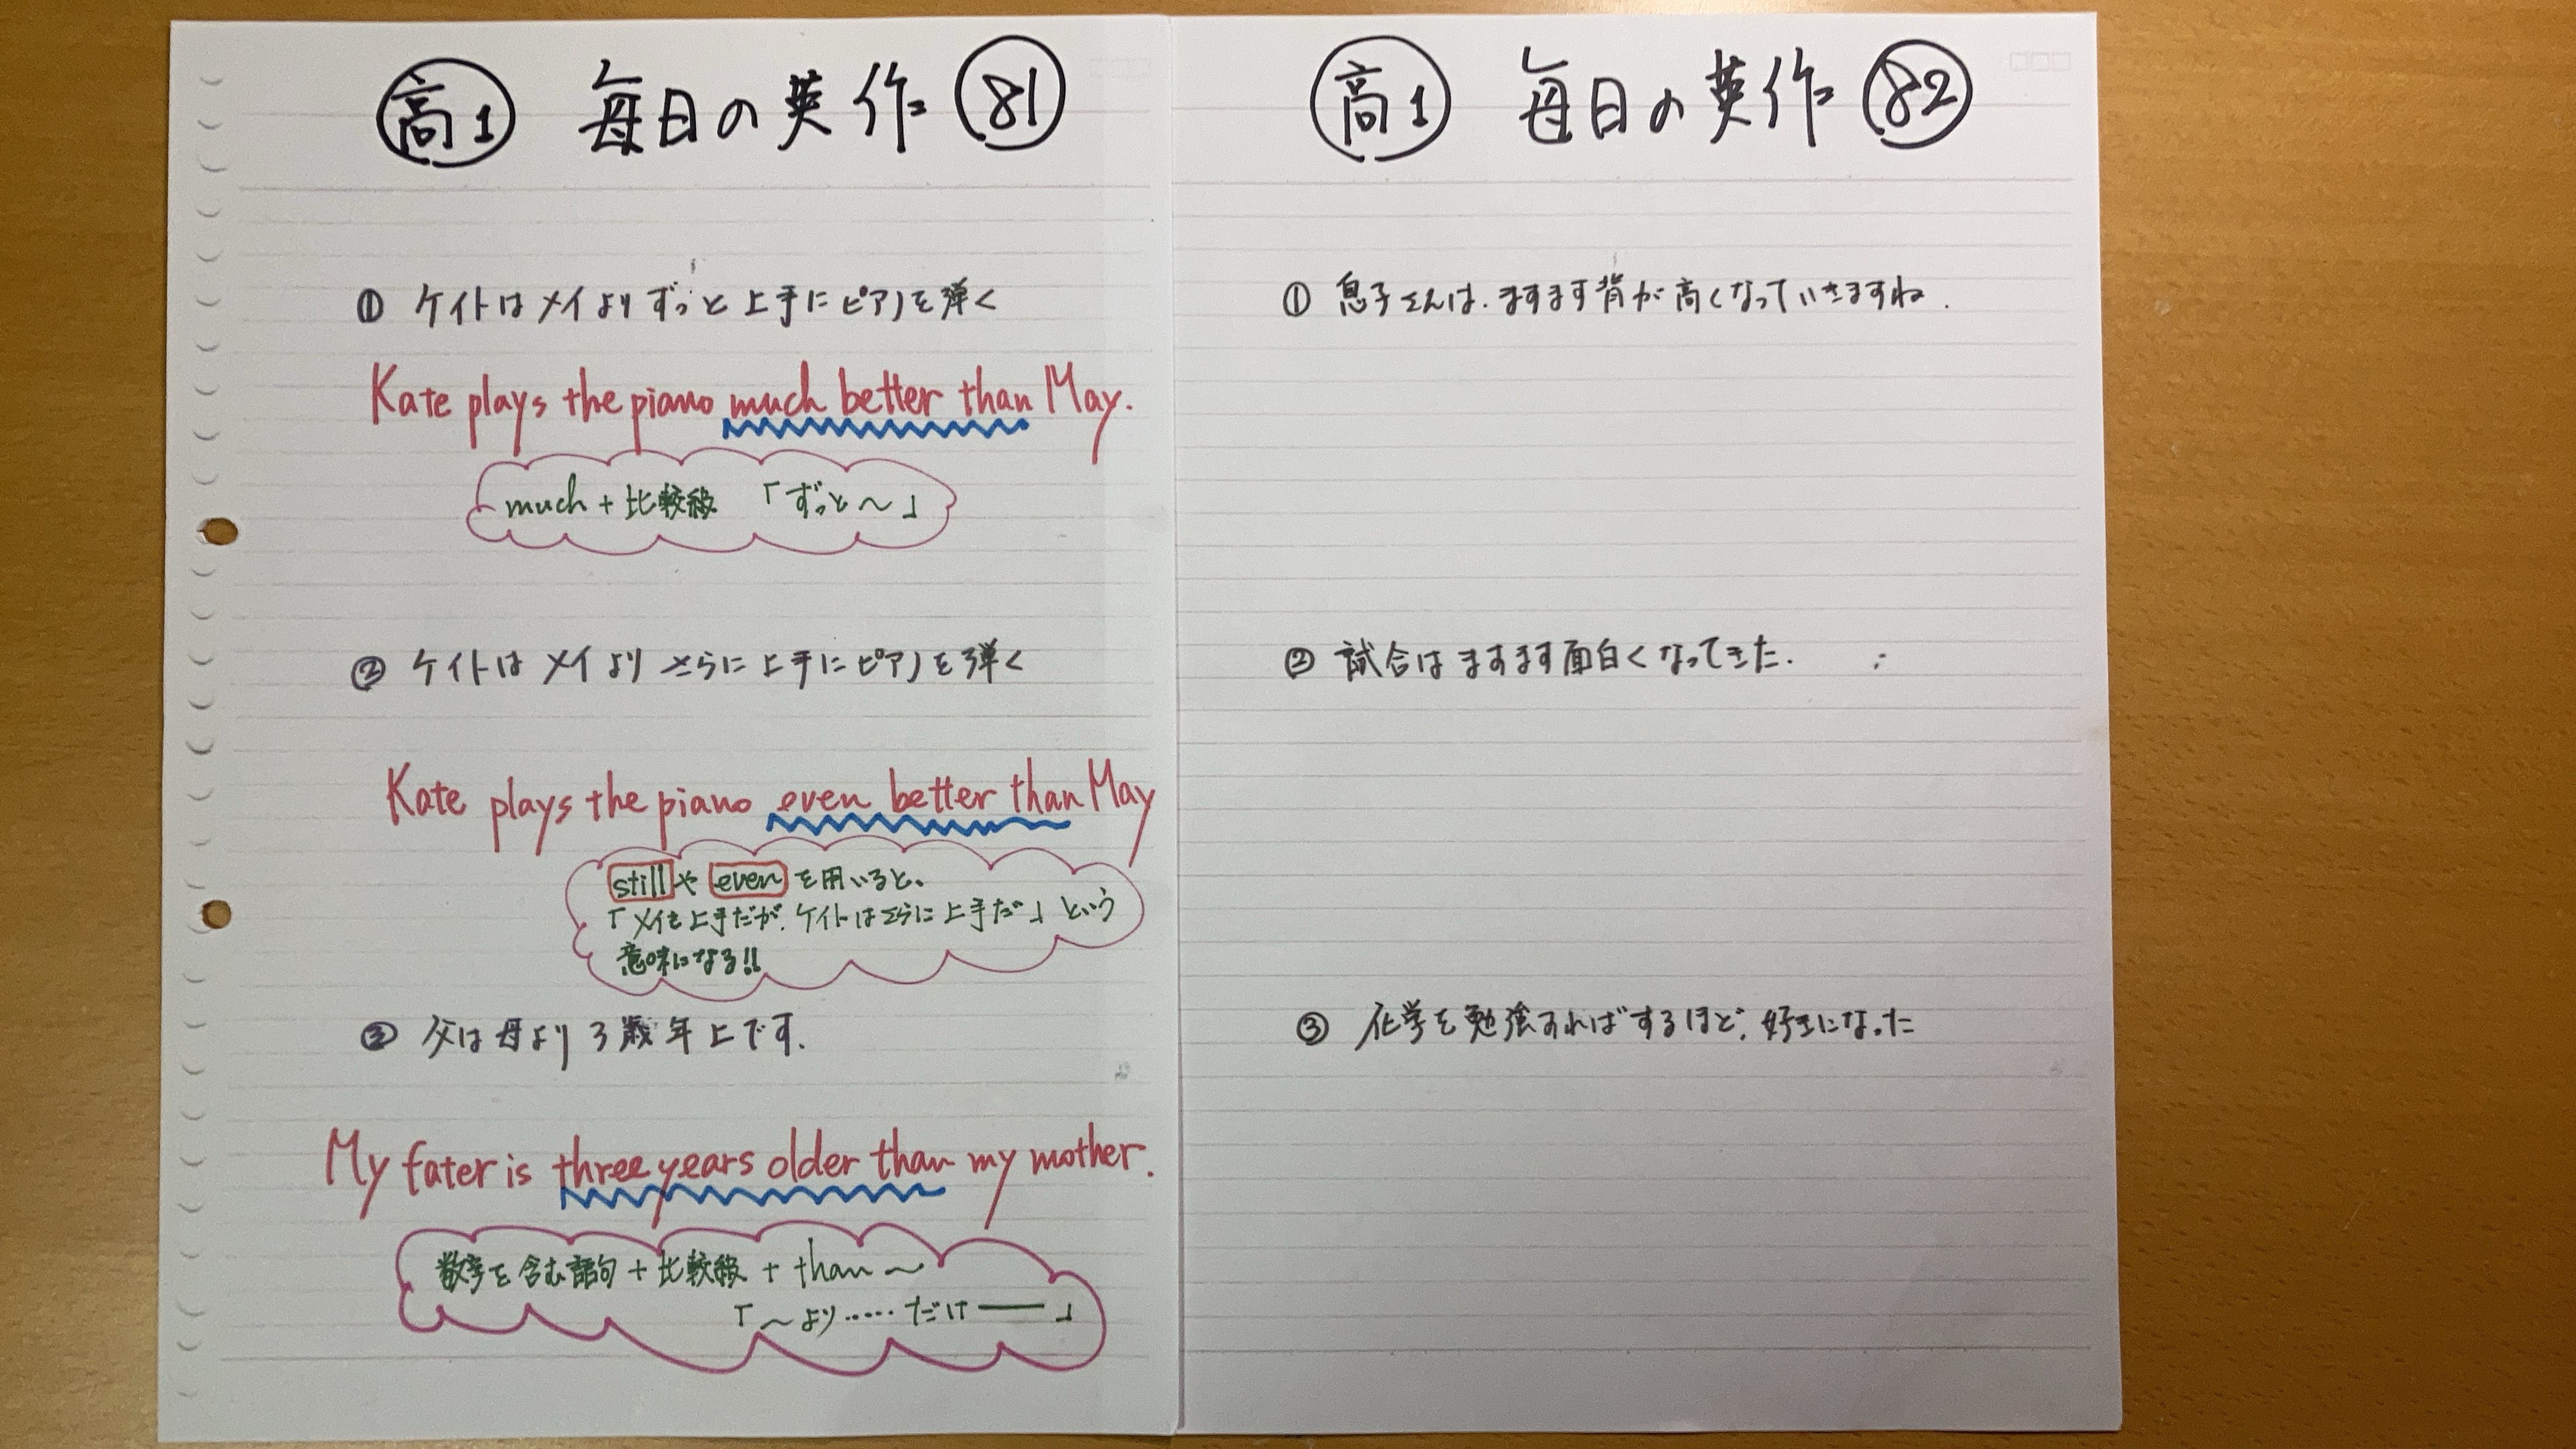 高1 毎日の英作 81
① ケイトはメイよりずっと上手にピアノを弾く
Kate plays the piano much better than May.
much + 比較級 「ずっと〜」
② ケイトはメイよりさらに上手にピアノを弾く
Kate plays the piano even better than May
still や even を用いると、
「メイも上手だが、ケイトはさらに上手だ」という
意味になる!!
③ 父は母より3歳年上です.
My fater is three years older than my mother.
数字を含む語句 + 比較級 + than 〜
「〜より……だけ ―― 」
高1 毎日の英作 82
① 息子さんは、ますます背が高くなっていきますね.
② 試合はますます面白くなってきた.
③ 化学を勉強すればするほど、好きになった